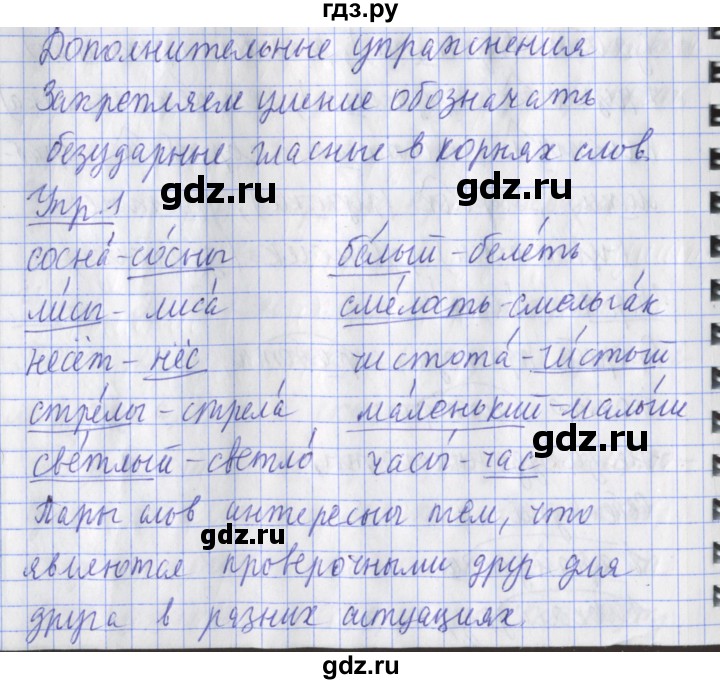 гдз.ру
Дополнительные упражнения
Закрепляем умение обозначать
безударные гласные в корнях слов.
gdz.ru gdz.ru
Упр.1
сосна́-со́сны бе́лый-беле́ть
ли́сы-лиса́ сме́лость-смельча́к
несёт-нёс чистота́-чи́стый
стре́лы-стрела́ ма́ленький-малы́ш
gdz.ru
све́тлый-светло́ часы́-час
Пары слов интересны тем, что
gdz.ru
являются проверочными друг для
друга в разных ситуациях.
gdz.ru